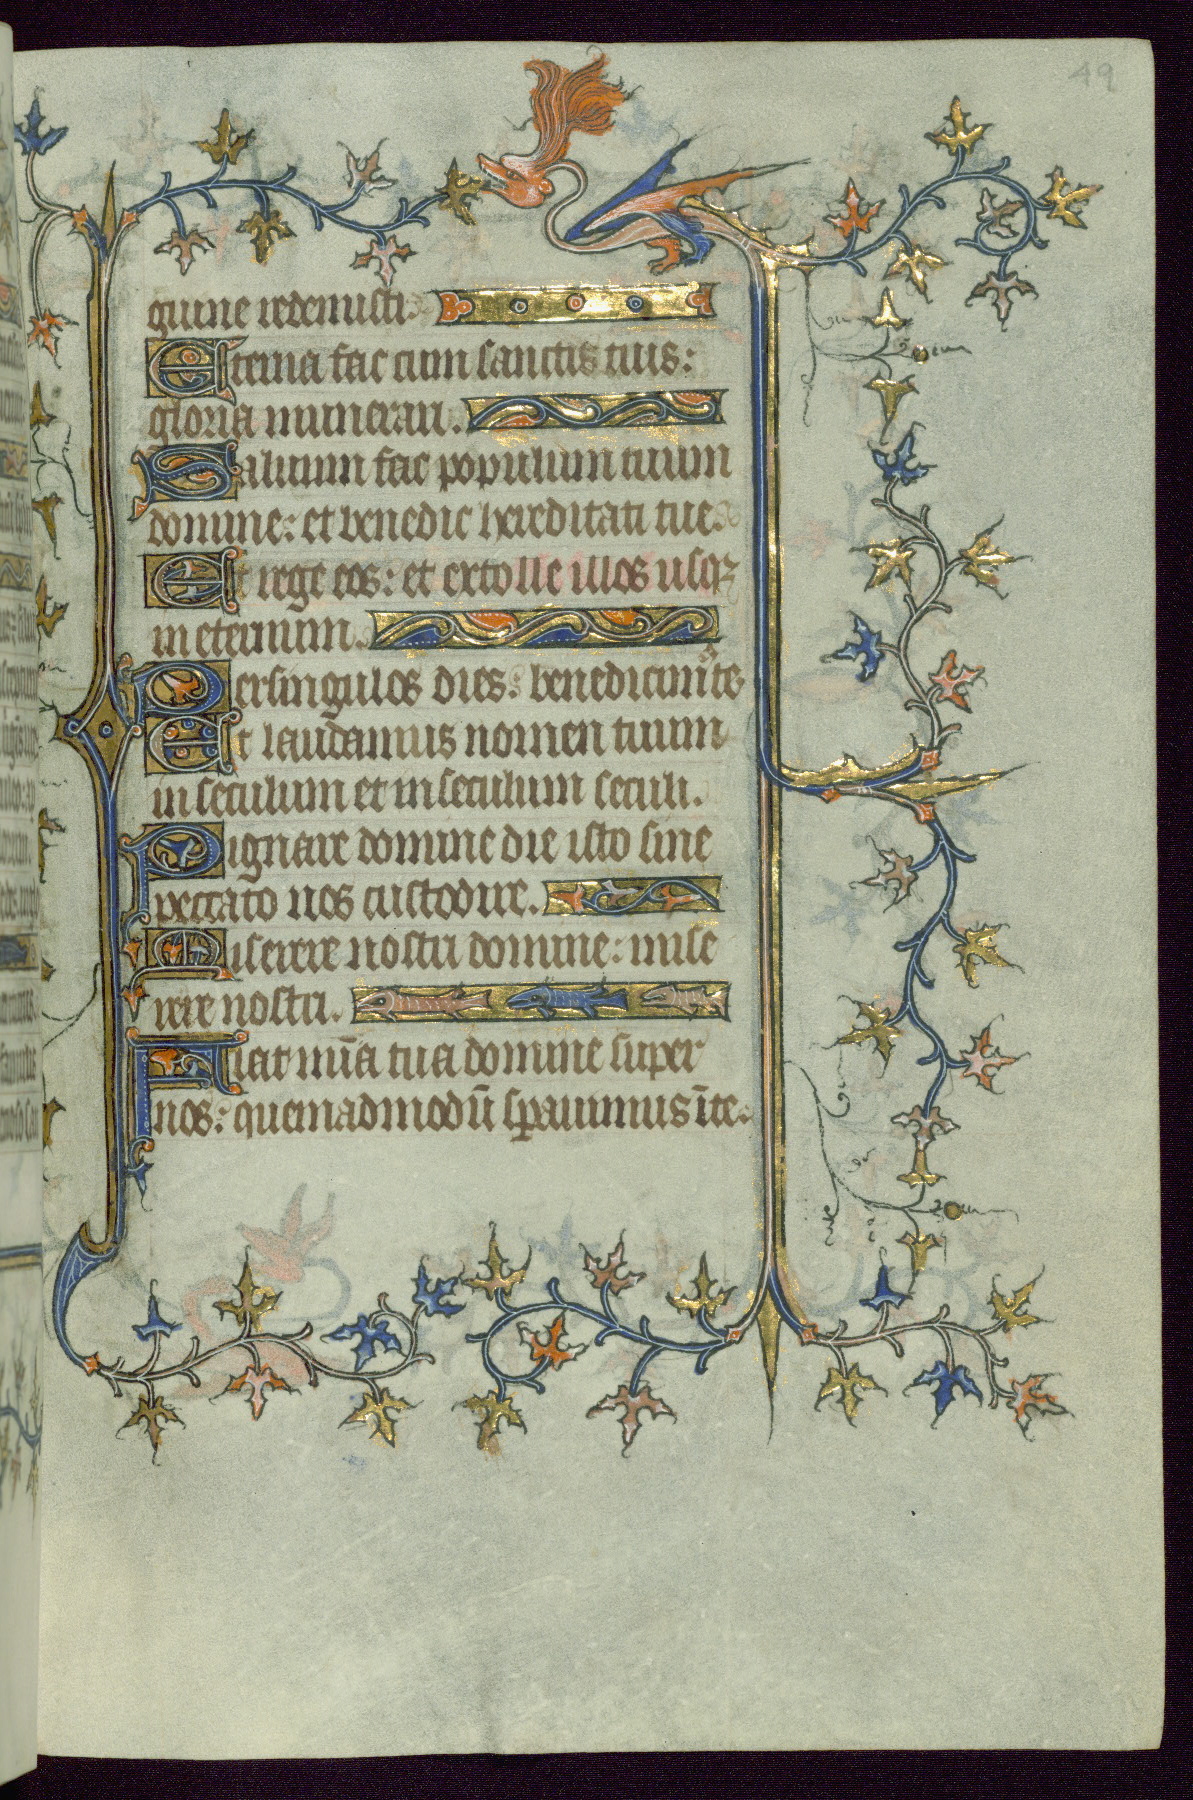 49
guine redemisti.
Eterna fac cum sanctis tuis:
gloria munerari.
Saluum fac populum tuum
domine: et benedic hereditati tue.
Et rege eos: et extolle illos usq;
in eternum.
Per singulos dies: benedicim⁹ te
Et laudamus nomen tuum
in seculum et in seculum seculi.
Dignare domine die isto sine
peccato nos custodire.
Miserere nostri domine: mise
rere nostri.
Fiat mīa tua domine super
nos: quemadmodū sperauimus ī te.